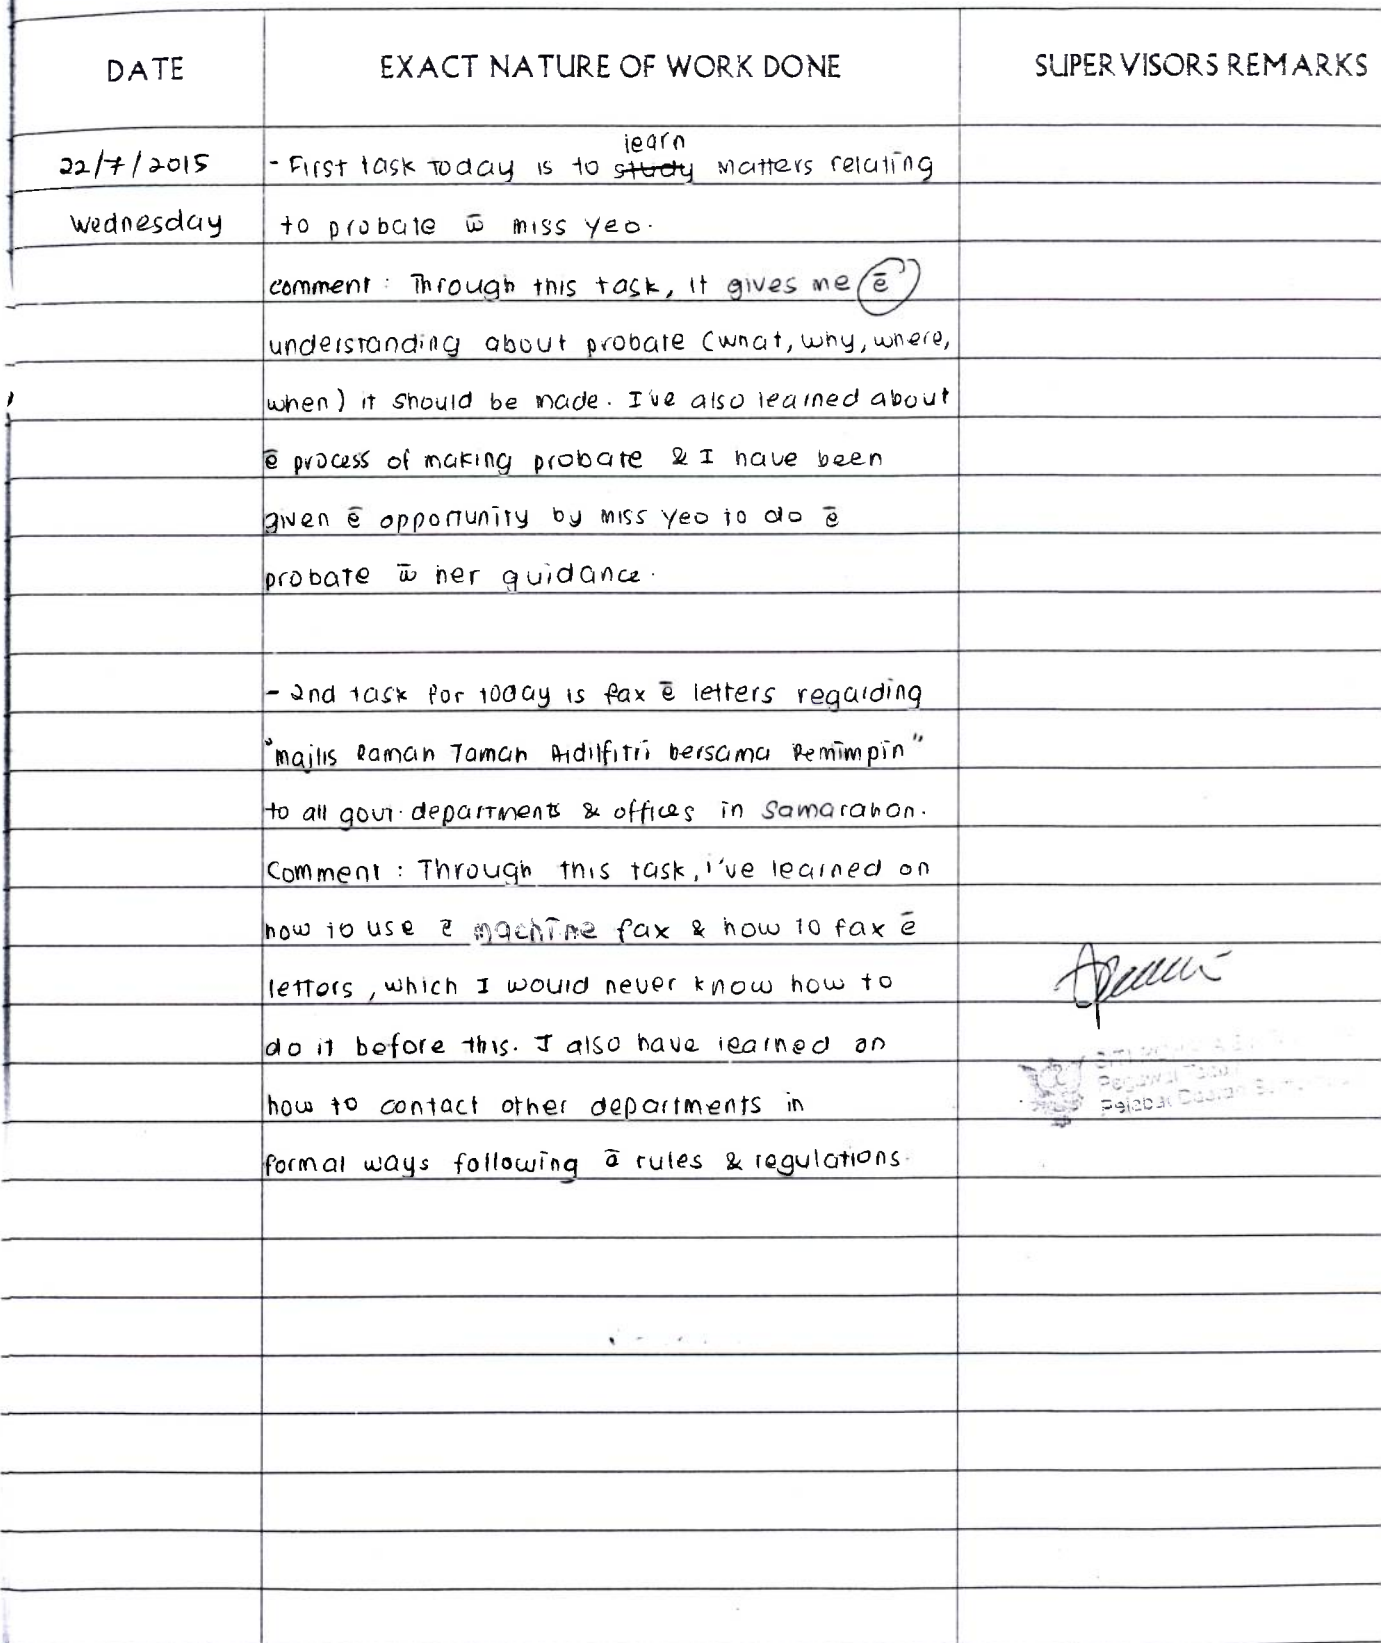 DATE EXACT NATURE OF WORK DONE SUPERVISORS REMARKS
learn
22/7/2015 - First task today is to study matters relating
Wednesday to probate w̄ miss yeo.
comment : Through this task, it gives me ē
understanding about probate (what, why, where,
when) it should be made. I've also learned about
ē process of making probate & I have been
given ē opportunity by miss yeo to do ē
probate w̄ her guidance.
- 2nd task for today is fax ē letters regarding
"majlis Ramah Tamah Aidilfitri bersama Pemimpin"
to all govt. departments & offices in Samarahan.
Comment : Through this task, i've learned on
how to use ē machine fax & how to fax ē
letters, which I would never know how to
do it before this. I also have learned on
how to contact other departments in
formal ways following ā rules & regulations.
SITI
Pegawai
Pejabat Daerah